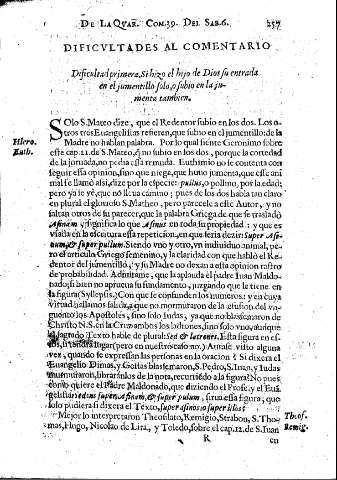 DE LA QVAR. COM. 39. DEL SAB. 6. 257
DIFICULTADES AL COMENTARIO
Dificultad primera, Si hizo el hijo de Dios su entrada
en el jumentillo solo, o subio en la ju-
menta tambien.
SOlo S. Mateo dize, que el Redentor subio en los dos. Los o-
tros tres Euangelistas refieren, que subio en el jumentillo: de la
Madre no hablan palabra. Por lo qual siente Geronimo sobre
este cap. 21. de S. Mateo, q̃ no subio en los dos, porque la cortedad
de la jornada, no pedia essa remuda. Euthimio no le contenta con
seguir essa opinion, sino que niega, que huuo jumenta, que esse ani
mal se llamò assi, dize por la especie: pullus, o pollino, por la edad;
pero ya se vè, que no lleua camino; pues de los dos habla tan claro
en plural el glorioso S. Matheo, pero parecele a este Autor, y no
faltan otros de su parecer, que la palabra Griega de que se trasladò
Asinam, significa lo que Asinus en toda su propiedad: y que es
vsada en la escritura essa repeticion, que seria dezir: Super Asi-
num, & super pullum. Siendo vno y otro, vn indiuiduo animal, pe-
ro el articulo Griego femenino, y la claridad con que hablò el Re-
dentor del jumentillo, y su Madre no dexan a essa opinion rastro
de probabilidad. Admirame, que la aplauda el padre Iuan Maldo-
nado, si bien no aprueua su fundamento, juzgando que le tiene en
la figura (Syllepsis,) Con que se confunden los numeros: y en cuya
virtud hallamos salida, a que no murmuraron de la efusion del vn-
guento los Apostoles, sino solo Iudas, ya que no blasfemaron de
Christo N. S. en la Cruz ambos los ladrones, sino solo vno, aunque
el sagrado Texto hable de plural: set & latrones. Esta figura en es-
sos, si tendra lugar (pero en nuestro caso no.) Anase visto alguna
vez, quando se expressan las personas en la oracion? Si dixera el
Euangelio Dimas, y Gestas blasfemaron, S. Pedro, S. Iuan, y Iudas
murmuraron, libraranlos de la nota, recurriẽdo a la figura? No pues
como quiere el Padre Maldonado, que diziendo el Profe. y el Euã-
gelista: sedens super Asinam, & super pullum, sirua essa figura; que
solo pudiera si dixera el Texto, super asinos, o super filios?
Mejor lo interpretaron Theofilato, Remigio, Strabon, S. Tho-
mas, Hugo, Nicolao de Lira, y Toledo, sobre el cap. 12. de S. Iuan
R en
Hiero.
Euth.
Theof.
Remig.